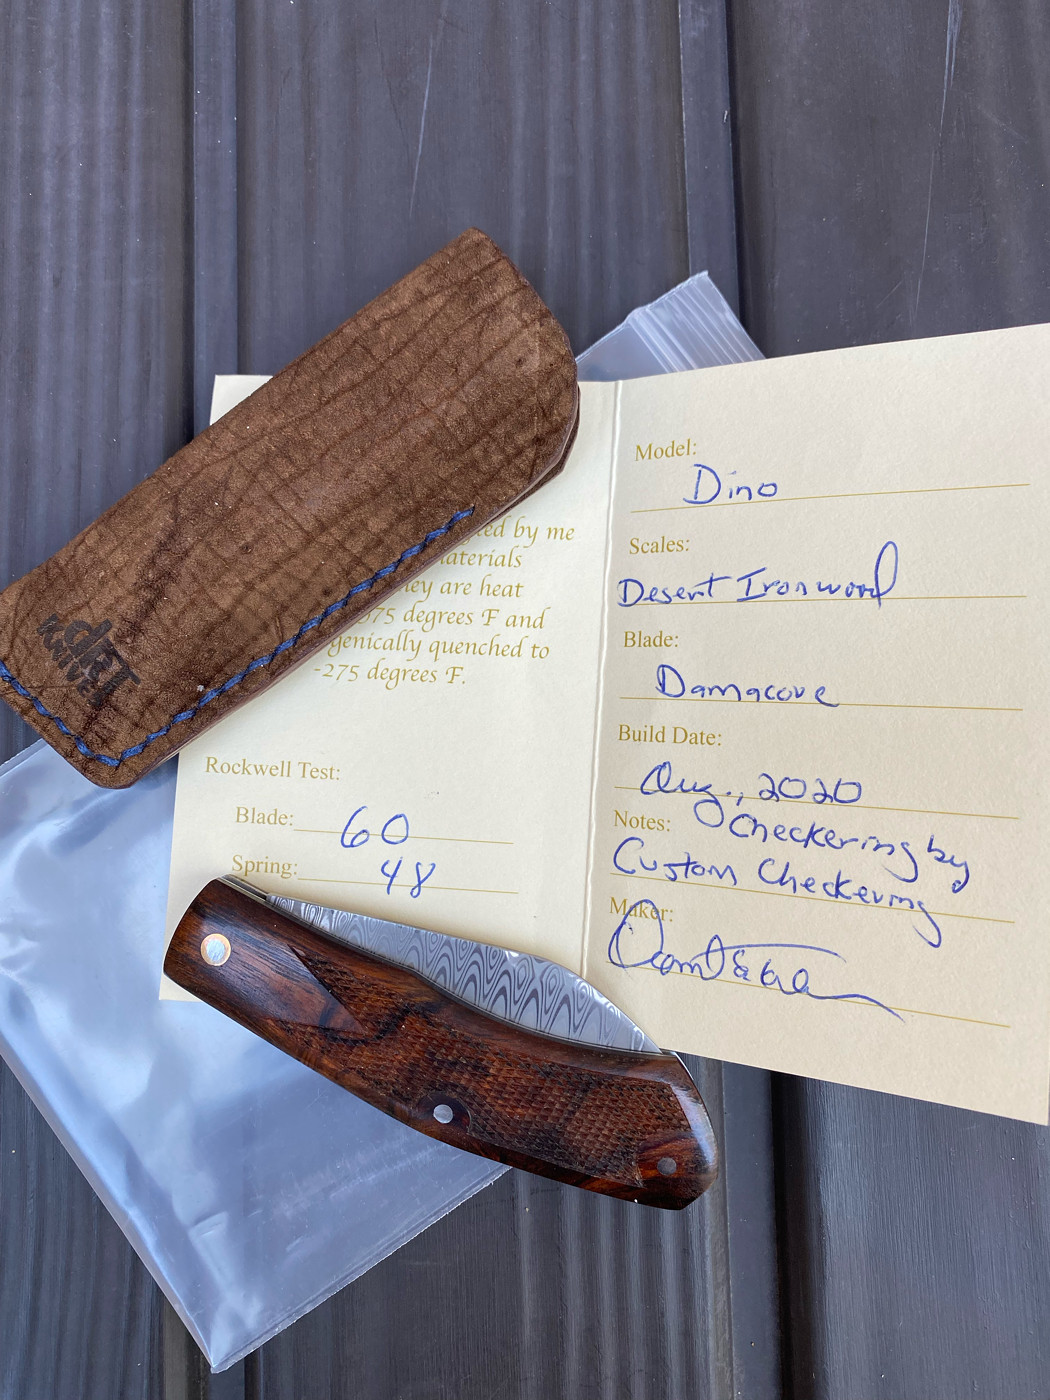 dirt
KNIVES
ted by me
aterials
hey are heat
75 degrees F and
genically quenched to
-275 degrees F.
Rockwell Test:
Blade: 60
Spring: 48
Model:
Dino
Scales:
Desert Ironwood
Blade:
Damacore
Build Date:
Aug., 2020
Notes: Checkering by
Custom Checkering
Maker: